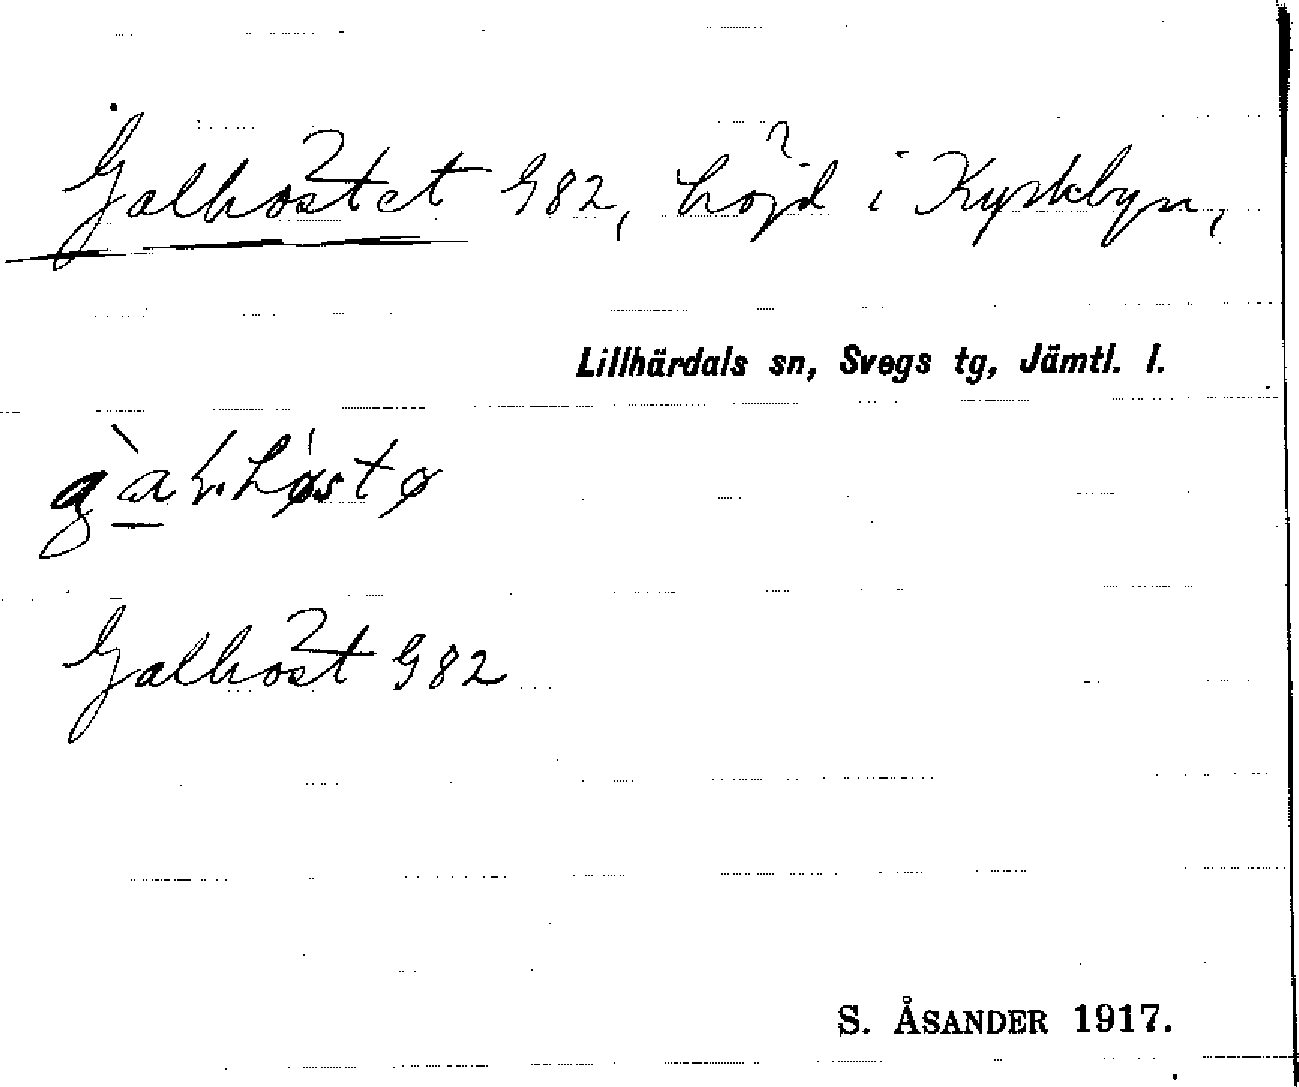 Galhöstet G82, höjd i Kyrkbyn,
Lillhärdals sn, Svegs tg, Jämtl. l.
Galhöst G82
S. ÅSANDER 1917.